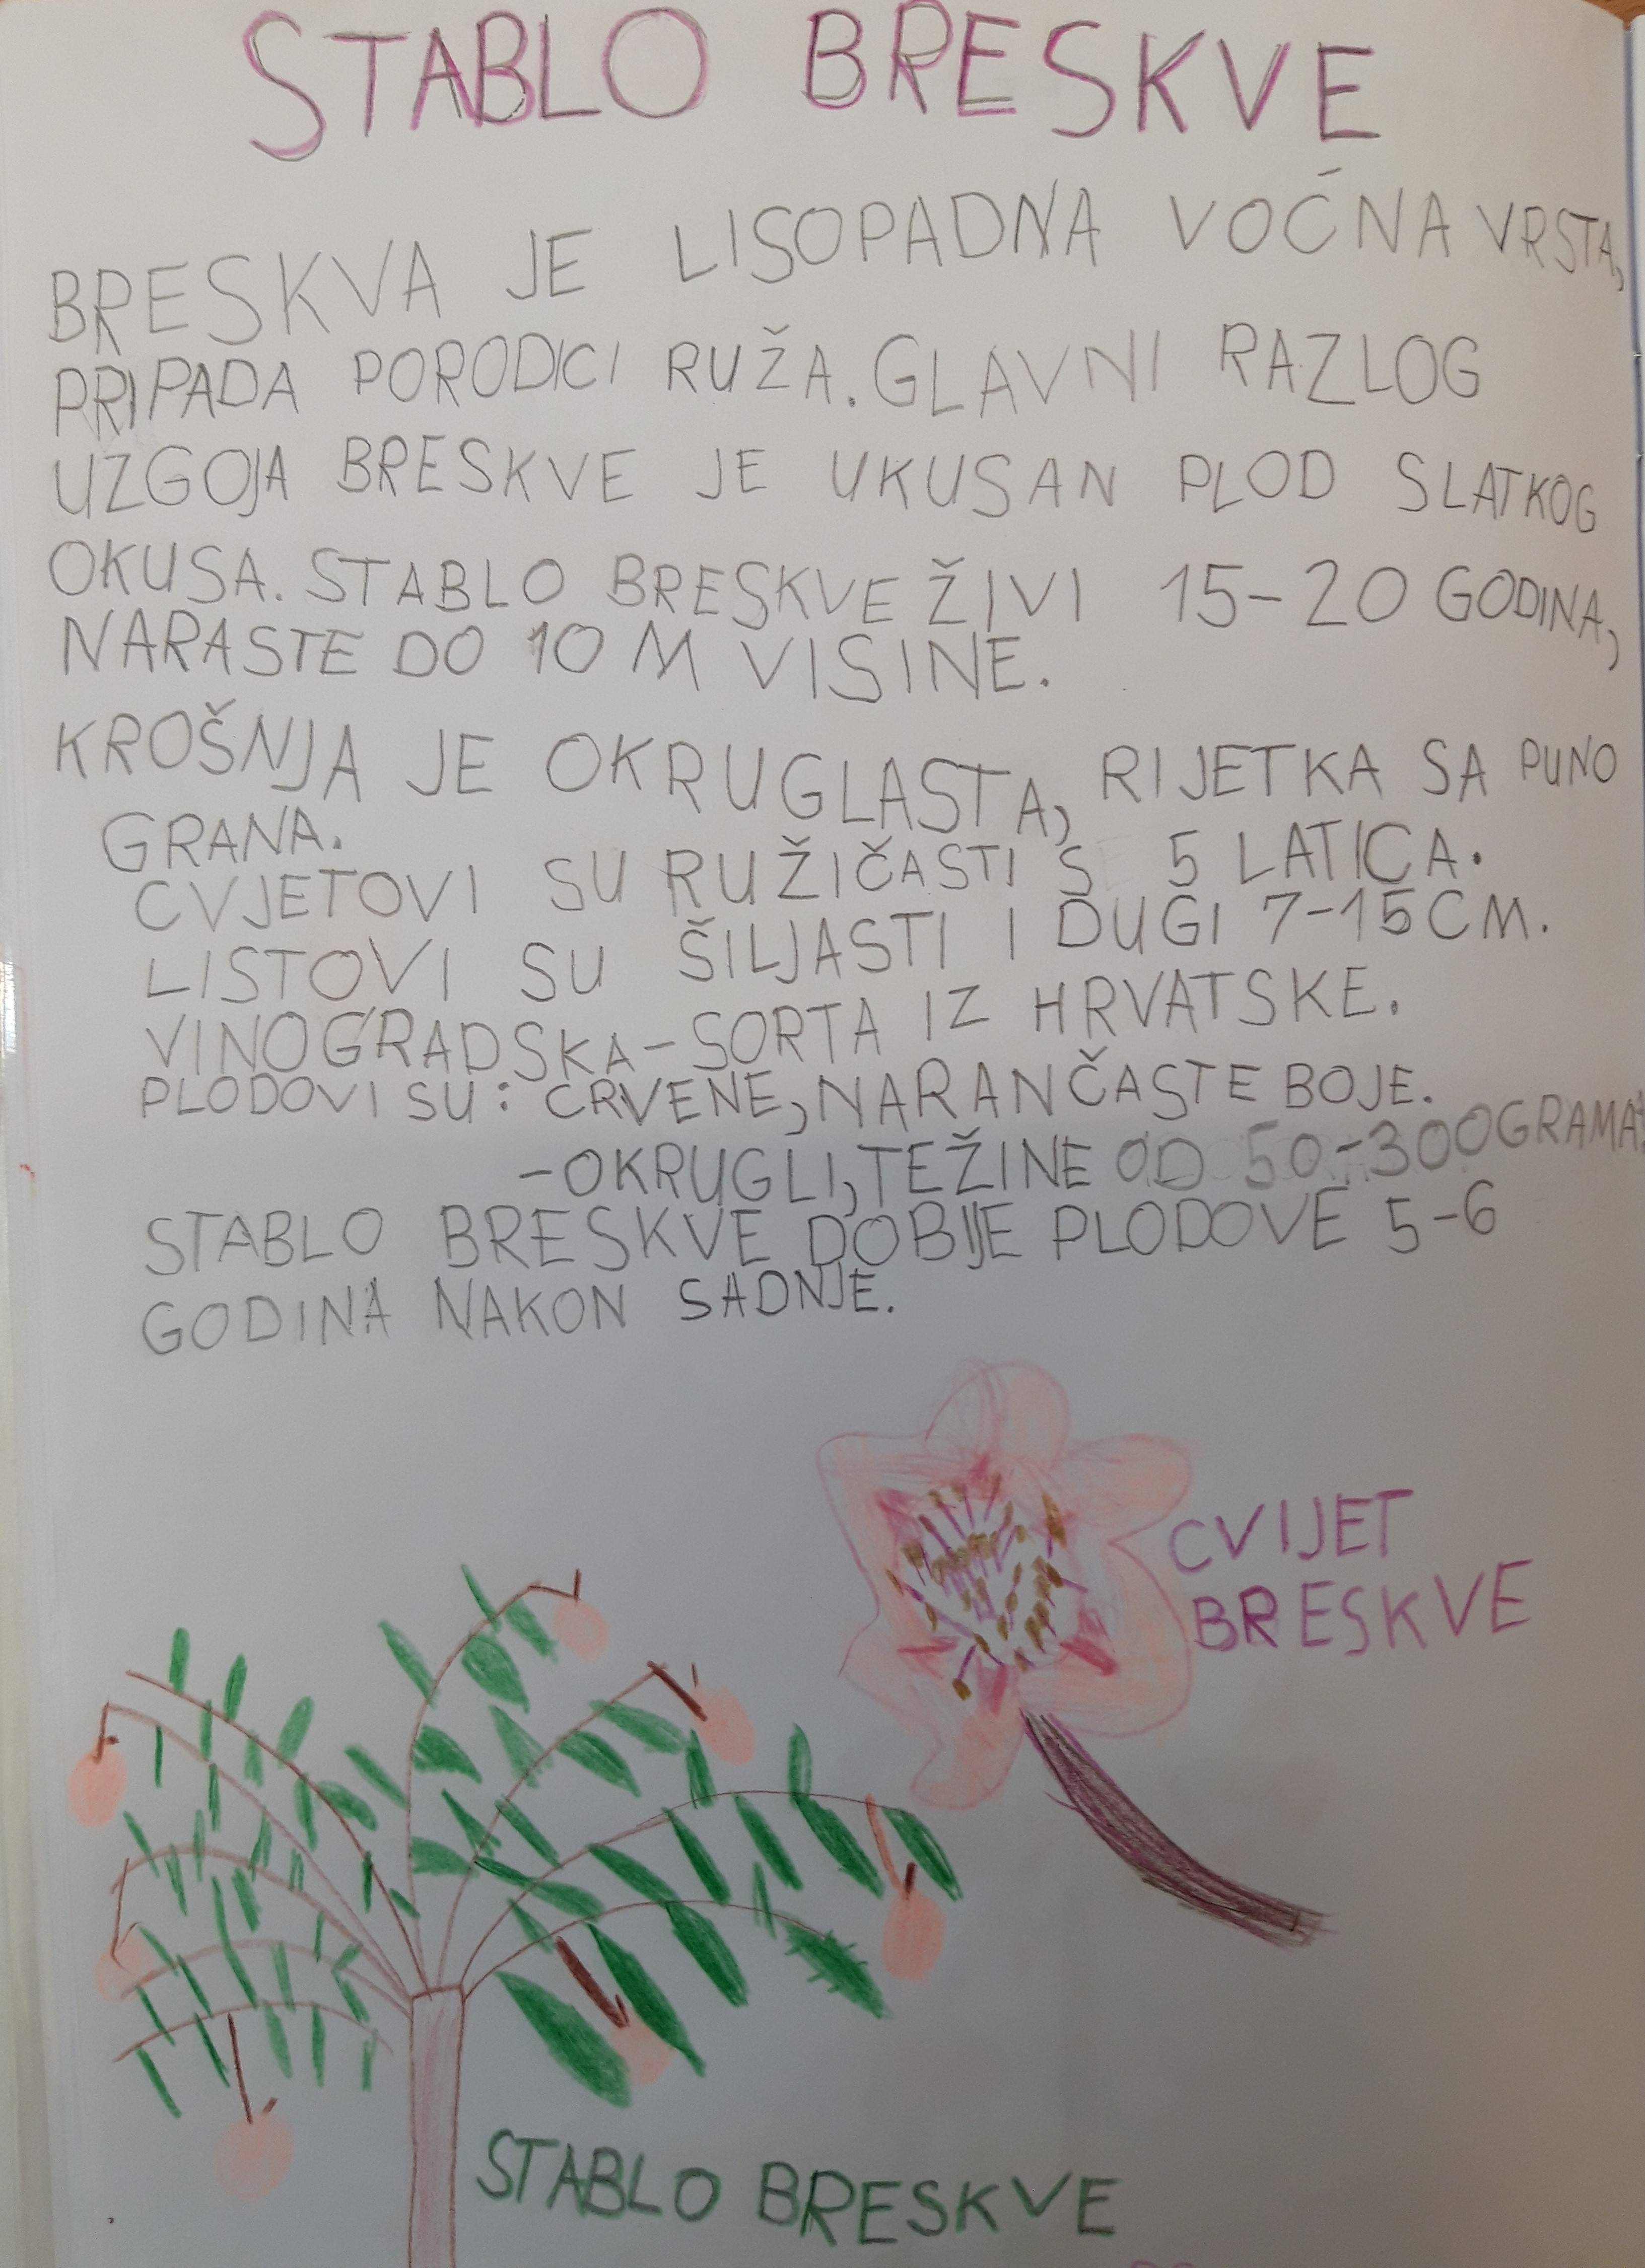 STABLO BRESKVE
BRESKVA JE LISOPADNA VOĆNA VRSTA,
PRIPADA PORODICI RUŽA. GLAVNI RAZLOG
UZGOJA BRESKVE JE UKUSAN PLOD SLATKOG
OKUSA. STABLO BRESKVE ŽIVI 15-20 GODINA,
NARASTE DO 10 M VISINE.
KROŠNJA JE OKRUGLASTA, RIJETKA SA PUNO
GRANA.
CVJETOVI SU RUŽIČASTI S 5 LATICA.
LISTOVI SU ŠILJASTI I DUGI 7-15 CM.
VINOGRADSKA-SORTA IZ HRVATSKE.
PLODOVI SU: CRVENE, NARANČASTE BOJE.
-OKRUGLI, TEŽINE OD 50-300 GRAMA.
STABLO BRESKVE DOBIJE PLODOVE 5-6
GODINA NAKON SADNJE.
CVIJET
BRESKVE
STABLO BRESKVE